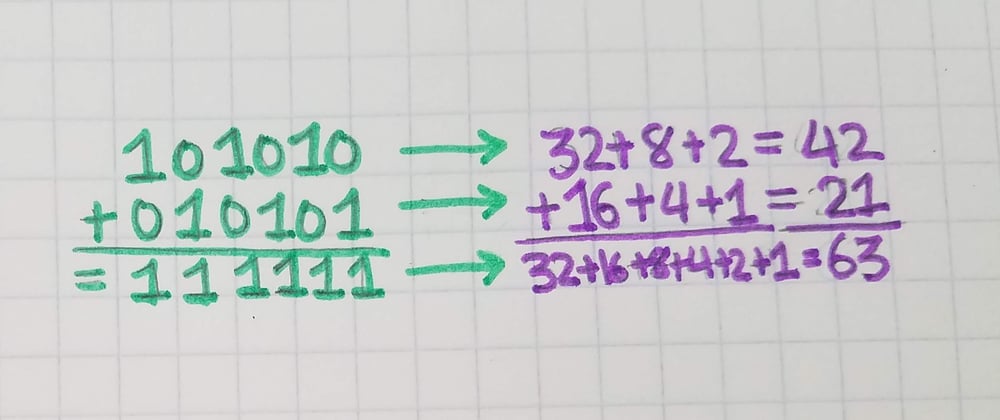 101010 → 32+8+2=42
+010101 → +16+4+1=21
=111111 → 32+16+8+4+2+1=63